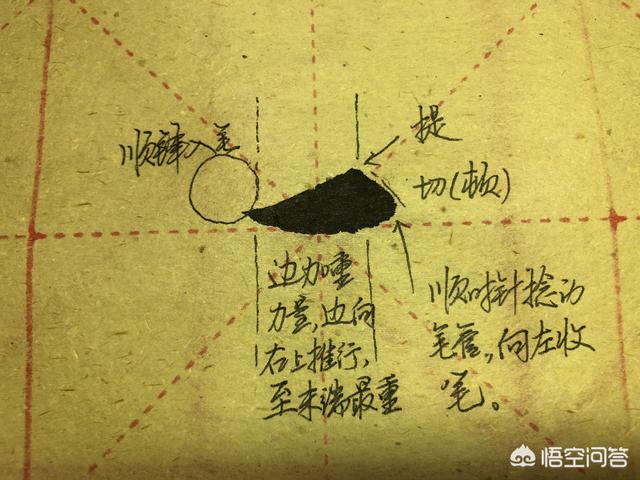 顺锋入笔
提
切(顿)
边加重
力量,边向
右上推行,
至末端最重
顺时针捻动
笔管,向左收
笔。
悟空问答